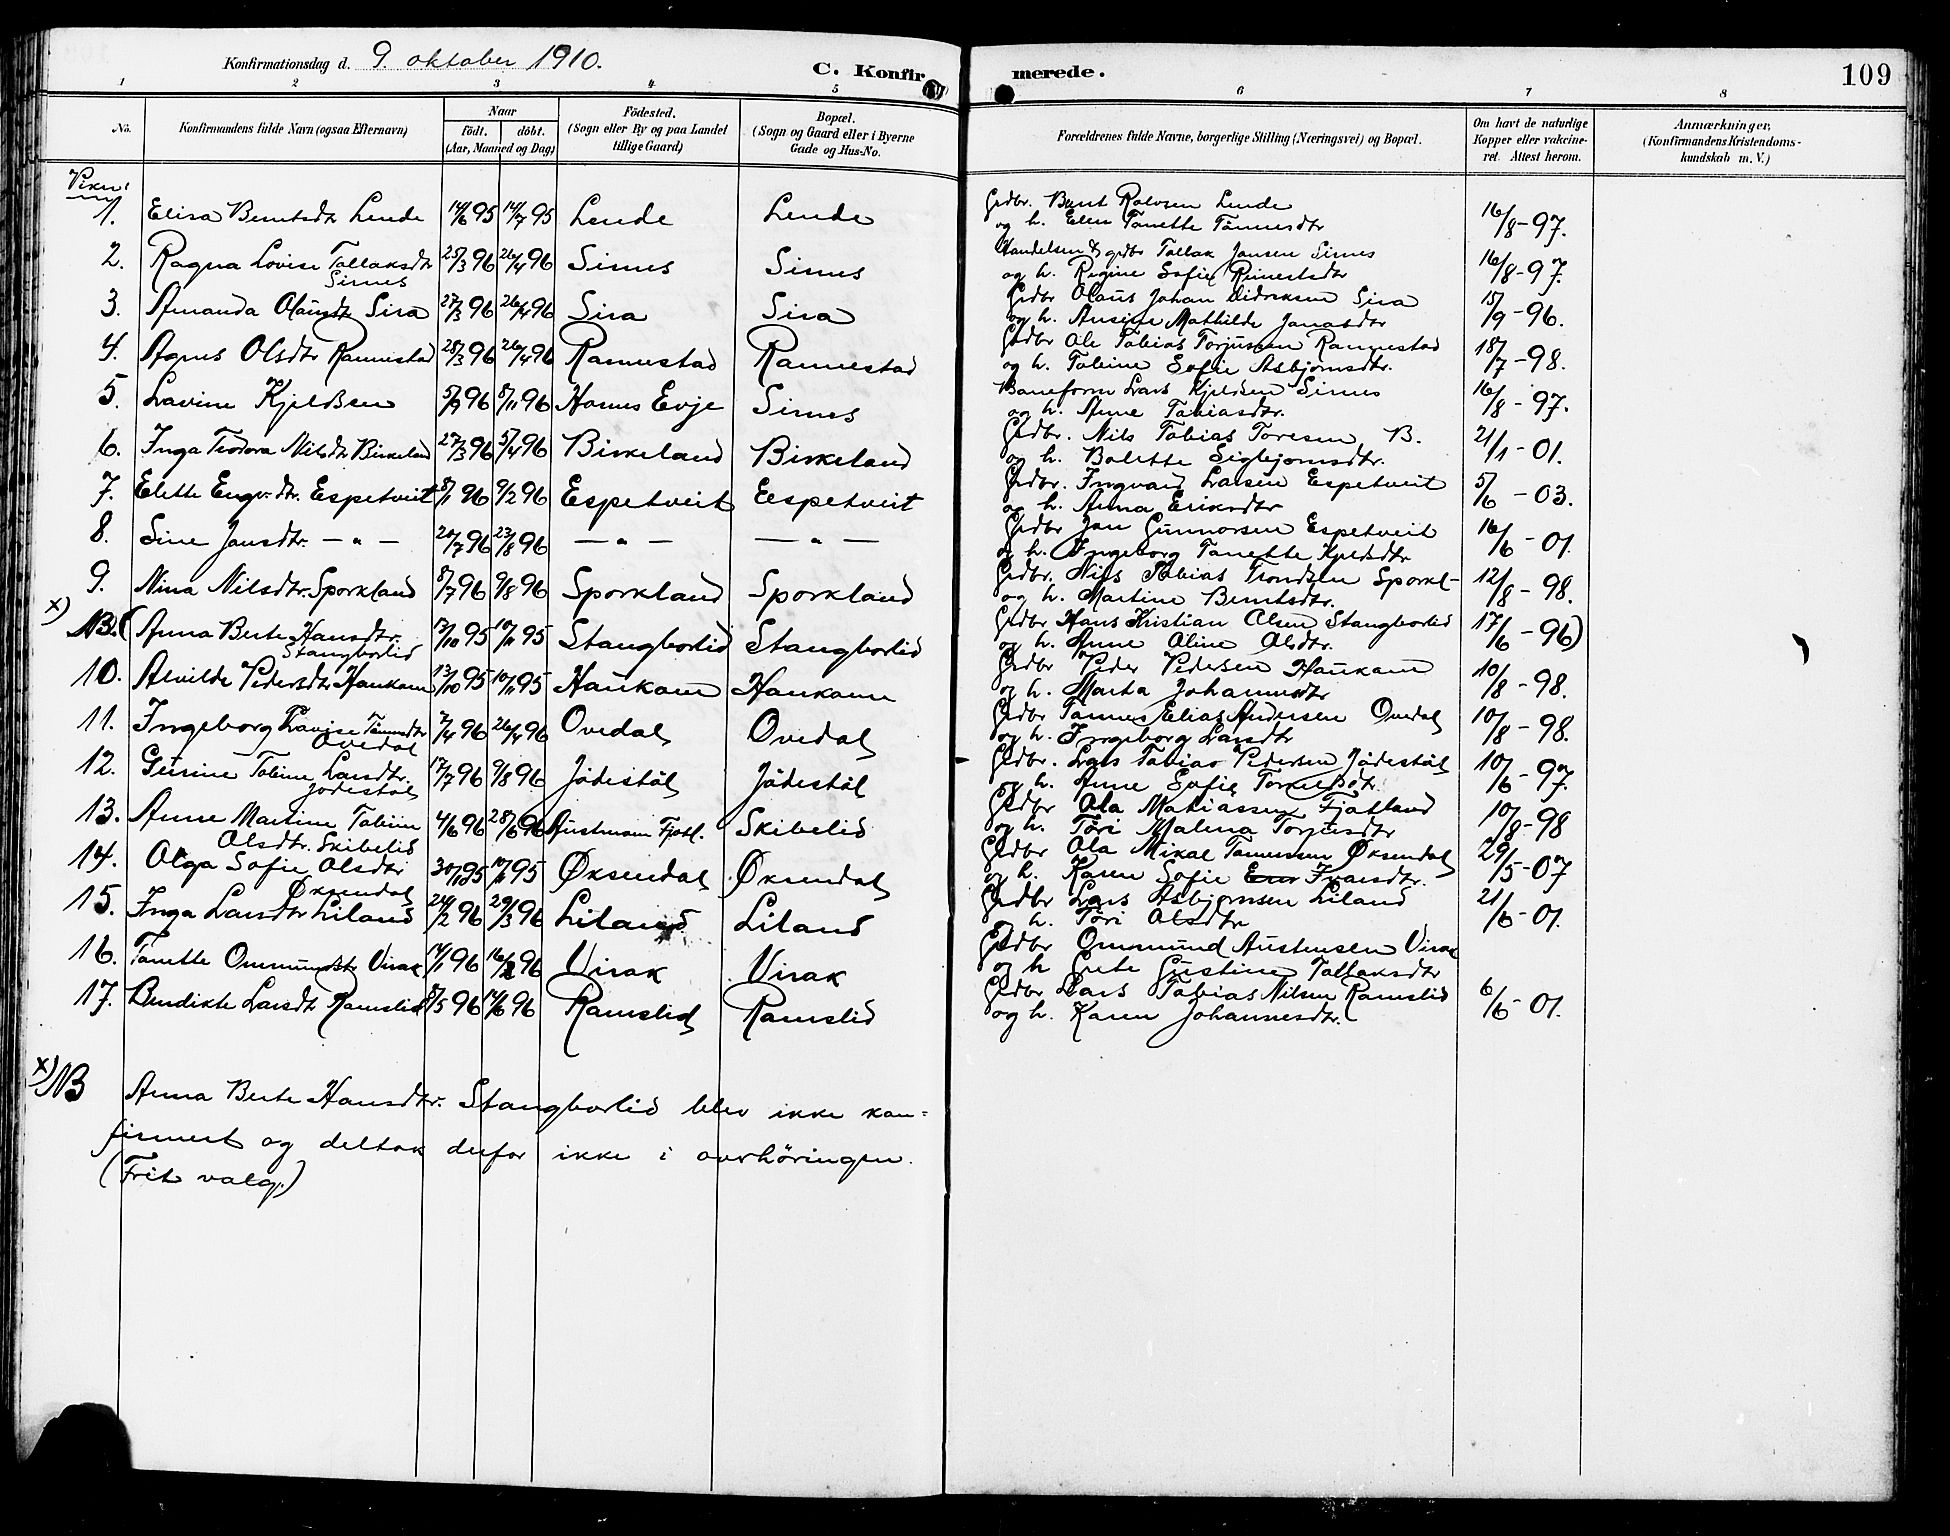 Konfirmationsdag d. 9. oktober 1910.
C. Konfirmerede.
109
1 2 3 4 5 6 7 8
No.
Konfirmandens fulde Navn (ogsaa Efternavn)
Naar
födt. döbt.
(Aar, Maaned og Dag)
Födested.
(Sogn eller By og paa Landet
tillige Gaard)
Bopæl.
(Sogn og Gaard eller i Byerne
Gade og Hus-No.
Forældrenes fulde Navne, borgerlige Stilling (Næringsvei) og Bopæl.
Om havt de naturlige
Kopper eller vakcine-
ret. Attest herom.
Anmærkninger,
(Konfirmandens Kristendoms-
kundskab m. V.)
1. Elisa Berntsdtr Lende 14/6 95 14/7 95 Lende Lende Grdbr. Bernt Lende 16/8-97.
og h. Elen Tanette Tannesdtr
2. Ragna Lovise Tallaksdtr 25/3 96 26/4 96 Sirnes Sirnes & grdbr Tallak Jansen Sirnes 16/8-97.
Sirnes og h. Regine Sofie
3. Amanda Olausdtr Sira 27/3 96 26/4 96 Sira Sira Grdbr Olaus Johan Didriksen Sira 15/9-96.
og h. Ansine Mathilde Janasdtr
4. Agnes Olsdtr Rannestad 28/3 96 26/4 96 Rannestad Rannestad Grdbr Ole Tobias Torjussen Rannestad 18/7-98.
og h. Tobine Sofie Asbjørnsdtr.
5. Lavine Kjeldsen 5/9 96 8/11 96 Hornes Evje Sirnes Baneform Lars Kjeldsen Sirnes 16/8-97.
og h. Anne Tobiasdtr.
6. Inga Teodora Nilsdtr Birkeland 27/3 96 5/4 96 Birkeland Birkeland Grdbr. Nils Tobias Toresen B. 21/1-01.
og h. Bolette
7. Elette Engv.dtr. Espetveit 8/1 96 9/2 96 Espetveit Eespetveit Grdbr. Ingvard Larsen Espetveit 5/6-03.
og h. Anna Eriksdtr
8. Sine Jansdtr. — „ — 20/7 96 23/8 96 — „ — — „ — Grdbr Jan Gunnarsen Espetveit 16/6-01.
og h. Ingeborg Tanette
9. Nina Nilsdtr. Sporkland 8/7 96 9/8 96 Sporkland Sporkland Grdbr. Nils Tobias Trondsen Sporkl- 12/8-98.
og h. Martine Berntsdtr.
x) NB. (Anna Berte Hansdtr. 13/10 95 10/11 95 Stangborlid Stangborlid Grdbr Hans Kristian Olsen Stangborlid 17/6-96)
Stangborlid og h. Anne Oline Olsdtr.
10. Alvilde Pedersdtr Haukom 13/10 95 10/11 95 Haukom Haukom Grdbr Peder Pedersen Haukom 10/8-98.
og h. Marta Johannesdtr
11. Ingeborg Lavise Tannesdtr 7/4 96 26/4 96 Ovedal Ovedal Grdbr Tannes Elias Andersen Ovedal 10/8-98.
Ovedal og h. Ingeborg Larsdtr
12. Gusine Tobine Larsdtr. 17/7 96 9/8 96 Jödestöl Jödestöl Grdbr. Lars Tobias Pedersen Jödestöl 10/6-97.
Jödestöl og h. Anne Sofie
13. Anne Martine Tobine 4/6 96 28/6 96 Skibelid Grdbr Ola Mathiassen Fjotland 10/8-98
Olsdtr. Skibelid og h. Töri Malena Torjusdtr
14. Olga Sofie Olsdtr 95 95 Øksendal Øksendal Grdbr Ola Mikal Tannessen Øksendal 29/5-07
Øksendal og h. Karen Sofie Ivarsdtr.
15. Inga Larsdtr Liland 24/2 96 29/3 96 Liland Liland Grdbr Lars Asbjørnsen Liland 21/6-01.
og h. Töri Olsdtr
16. Tanette Ommundsdtr Virak 14/1 96 16/2 96 Virak Virak Grdbr Ommund Austensen Virak
og h Grete Gustine Tallaksdtr
17. Bendikte Larsdtr Ramslid 8/5 96 14/6 96 Ramslid Ramslid Grdbr Lars Tobias Nilsen Ramslid 6/6-01.
og h. Karen Johannesdtr.
x) NB Anna Berte Hansdtr. Stangborlid blev ikke kon=
firmert og deltok derfor ikke i overhöringen.
(Frit valg.)